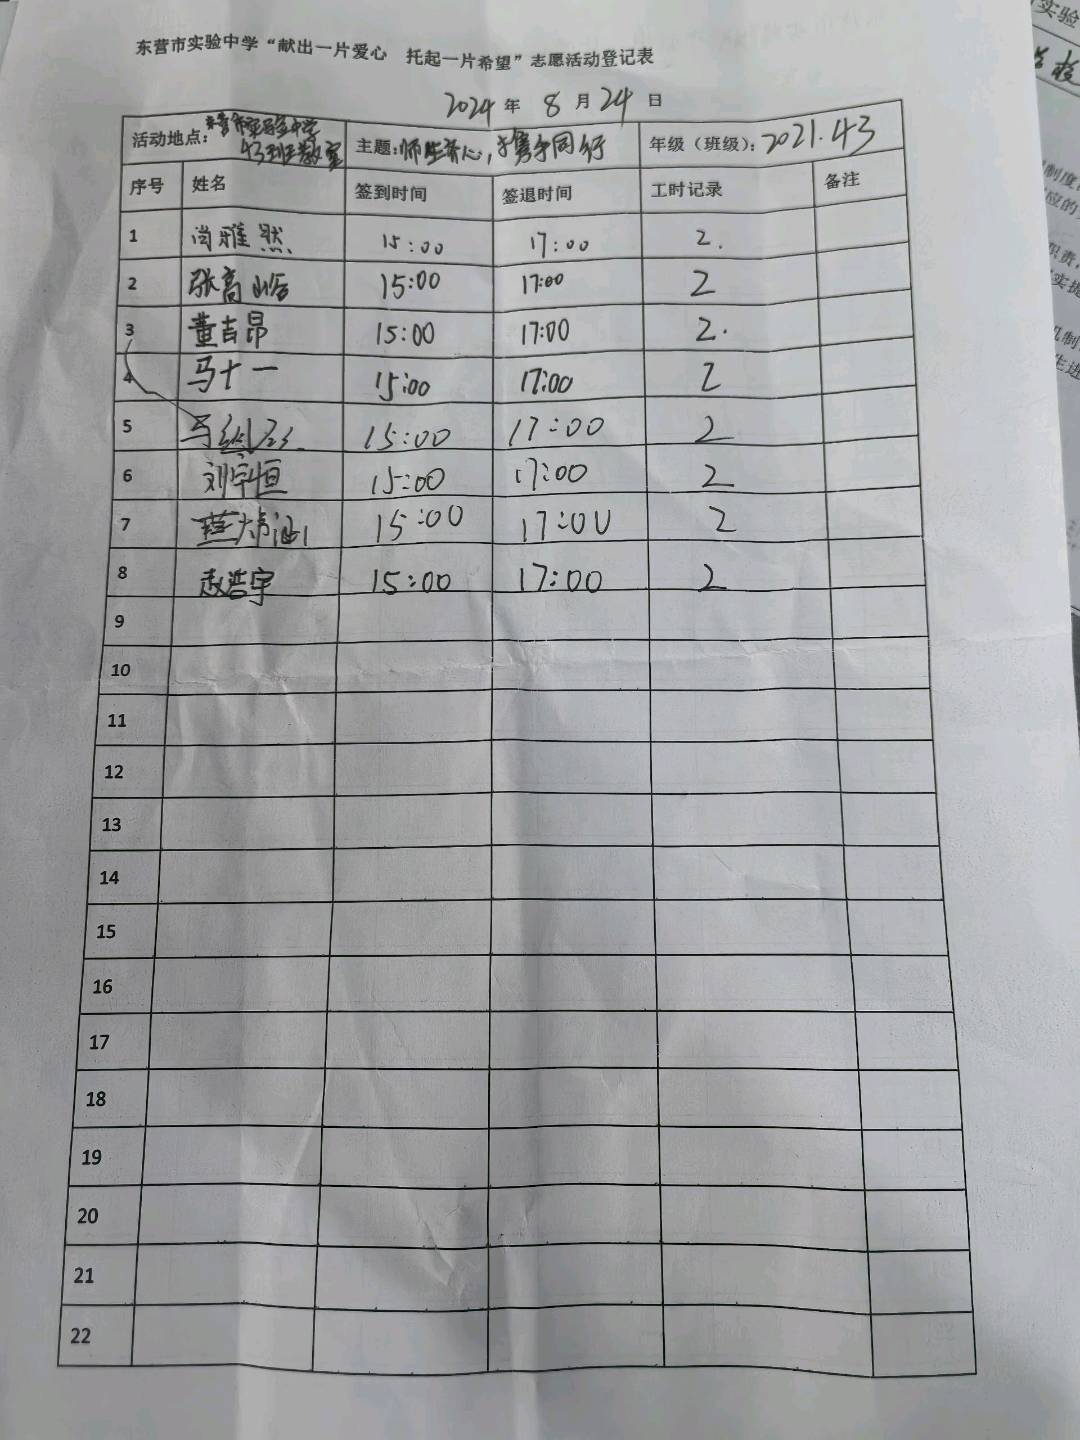 东营市实验中学“献出一片爱心 托起一片希望”志愿活动登记表
2024 年 8 月 24 日
活动地点：东营市实验中学 43班教室 主题：师生齐心，携手同行 年级（班级）：2021.43
序号 姓名 签到时间 签退时间 工时记录 备注
1 尚雅然 15:00 17:00 2.
2 张高峪 15:00 17:00 2
3 董吉昂 15:00 17:00 2.
4 马十一 15:00 17:00 2
5 马 15:00 17:00 2
6 刘宇恒 15:00 17:00 2
7 15:00 17:00 2
8 赵浩宇 15:00 17:00 2
9
10
11
12
13
14
15
16
17
18
19
20
21
22